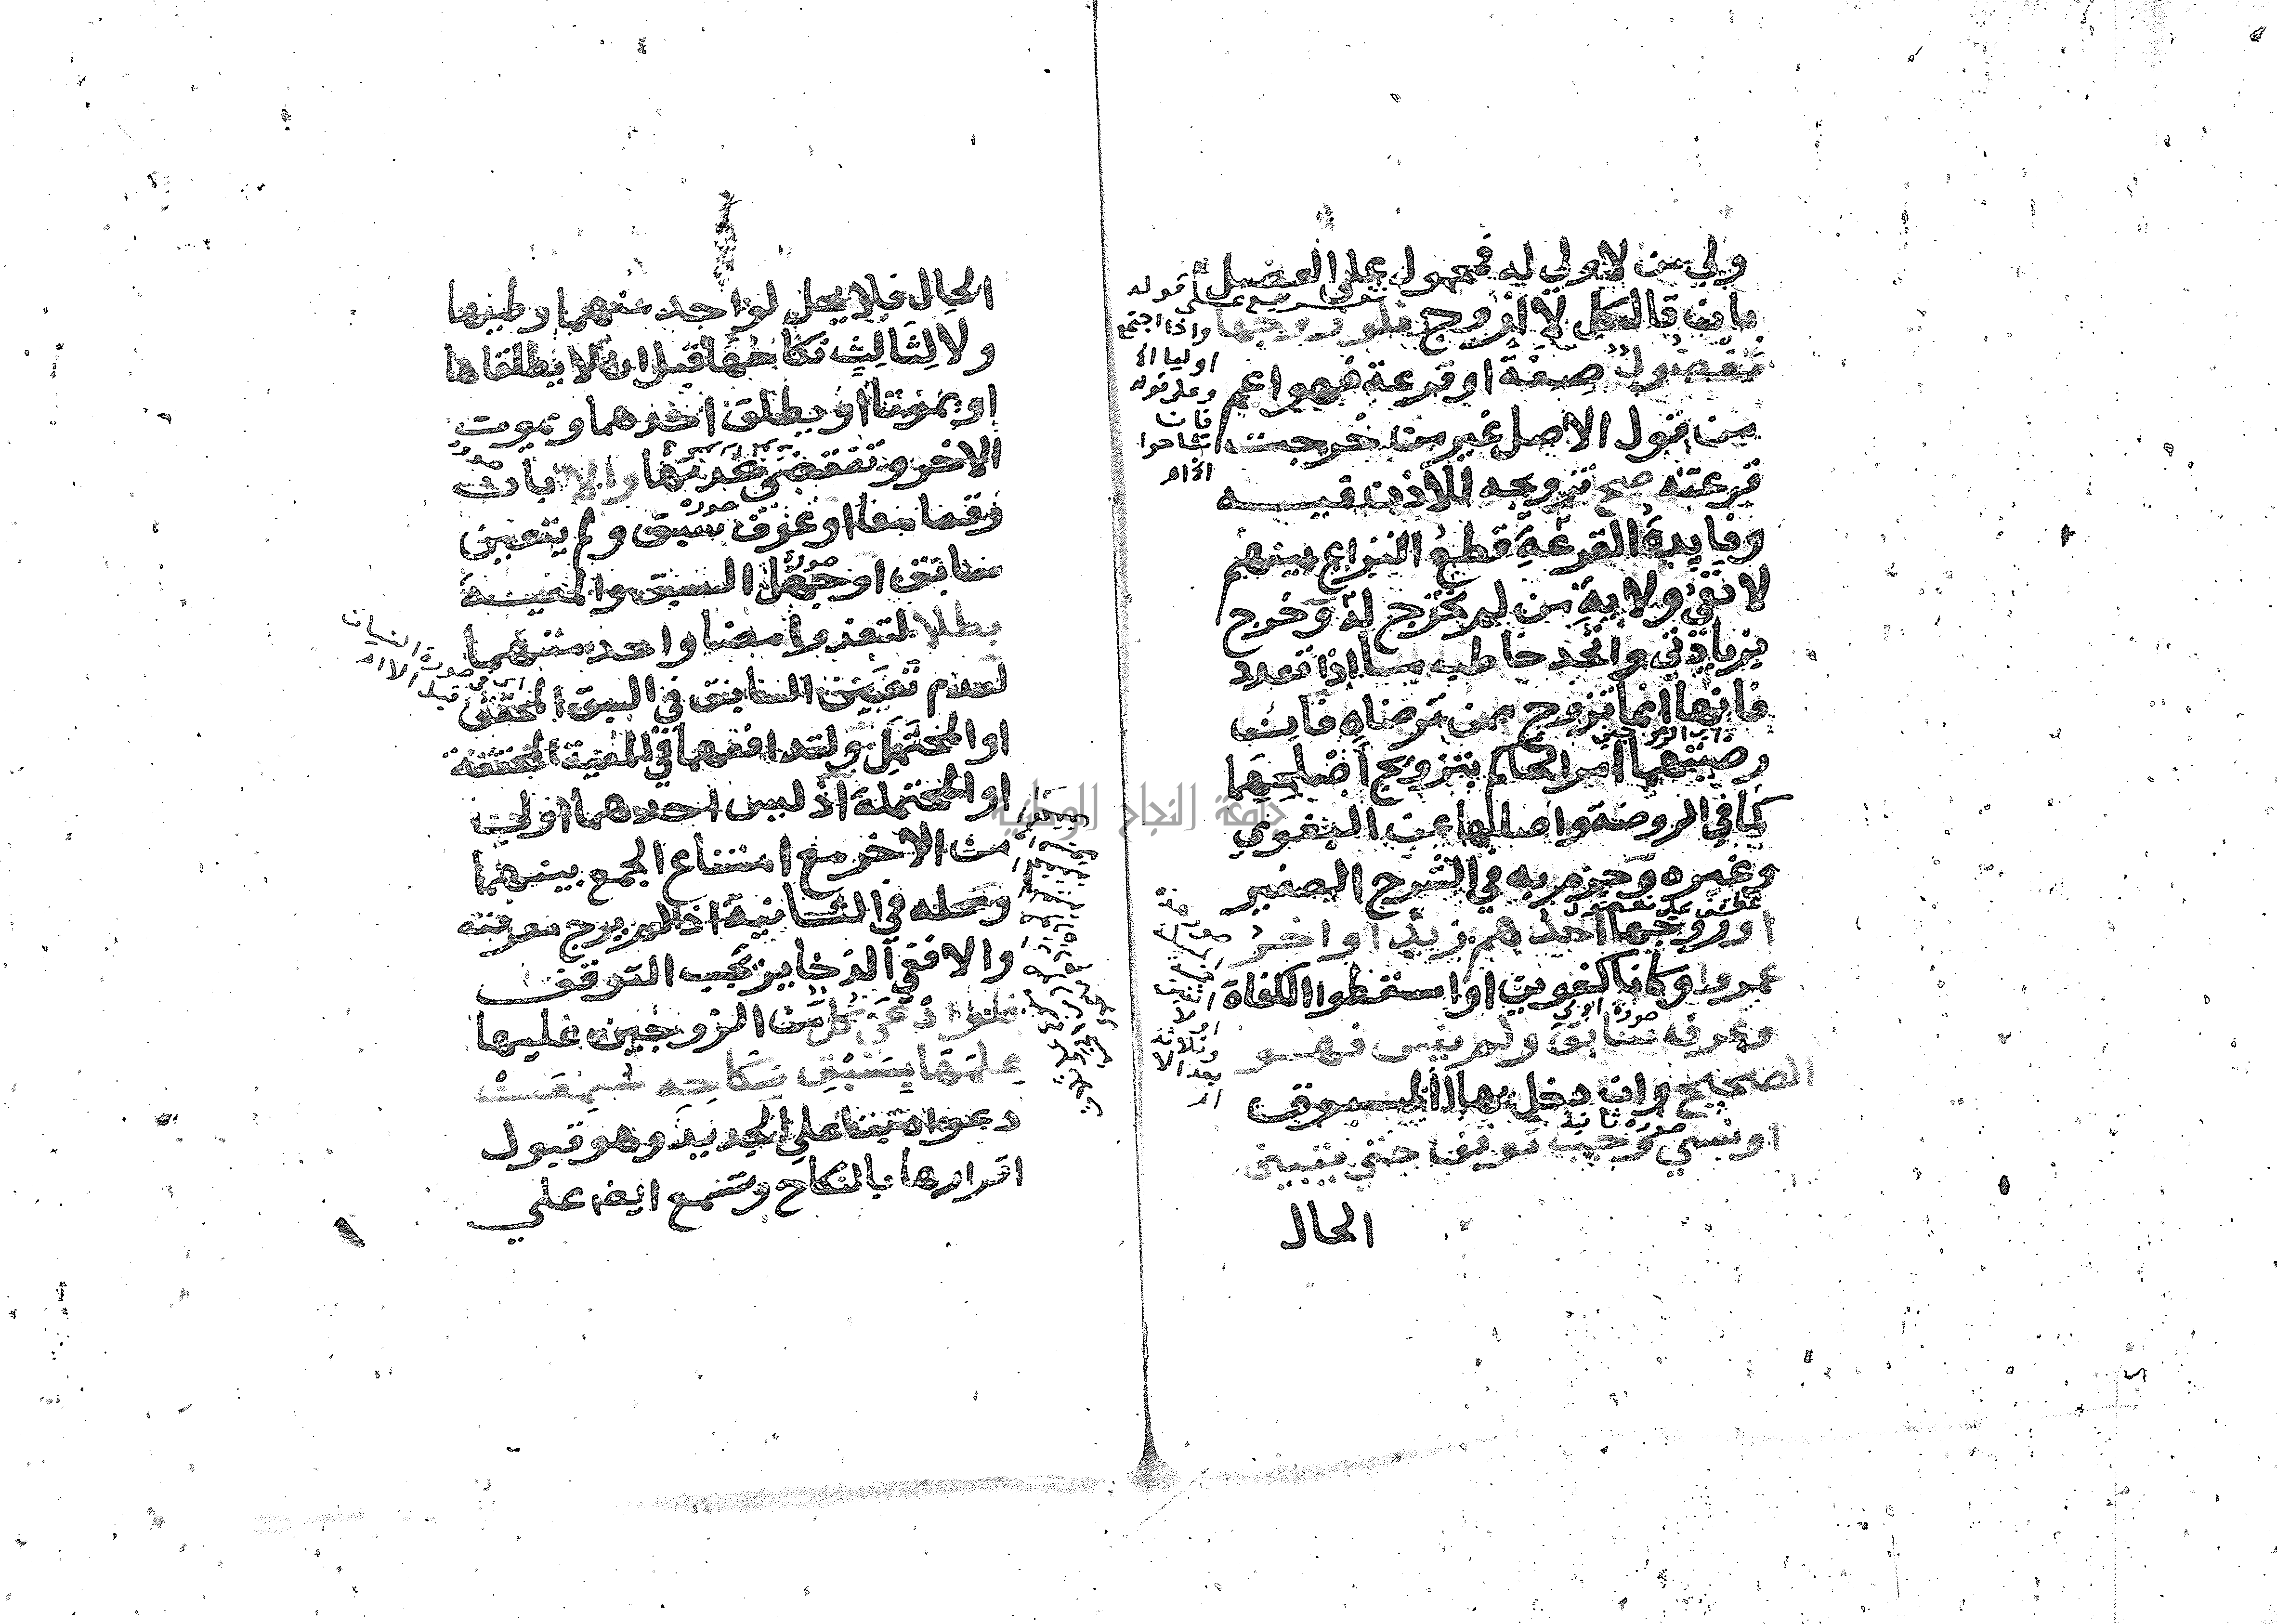 ولي من لا ولي له فمحمول علي العضل
بان قال كل لا ازوج فلو زوجها
مفضول صفة او قرعة فهو اعم
من قول الاصل غير من خرجت
قرعته صح تزويجه للاذن فيه
وفايدة القرعة قطع النزاع بينهم
لا نفي ولاية من لم تخرج له وخرج
بزيادتي واتحد خاطب ما اذا تعدد
فانها انما تزوج بمن ترضاه فان
رضيتهما امر الحاكم بتزويج اصلحهما
كما في الروضة واصلها عن البغوي
وغيره وجزم به في الشرح الصغير
او زوجها احدهم زيد او اخر
عمروا وكانا كفوين او اسقطوا الكفاة
وعرف سابق ولم ينس فهو
الصحيح وان دخل بها المسبوق
او نسي وجب توقف حتي يتبين
الحال
قوله
واذا اجتمع
اوليا اه
وعلي قوله
فان
تشاحوا
الحال فلا يحل لواحد منهما وطيها
ولا لثالث نكاحها قبل ان يطلقاها
او يموتا او يطلق احدهما ويموت
الاخر وتنقضي عدتها والا بان
وقعا معا او عرف سبق ولم يتعين
سابق او جهل السبق والمعية
بطلا لتعذر امضا واحد منهما
لعدم تعين السابق في السبق المحقق
او المحتمل ولتدافعهما في المعية المحققة
او المحتملة اذ ليس احدهما اولي
من الاخر مع امتناع الجمع بينهما
ومحله في الثانية اذا لم يرج معرفته
والا ففي الذخاير يجب التوقف
فلو ادعي كل من الزوجين عليها
علمها بسبق نكاحه سمعت
دعواه بنا علي الجديد وهو قبول
اقرارها بالنكاح وتسمع ايض علي
جامعة النجاح الوطنية